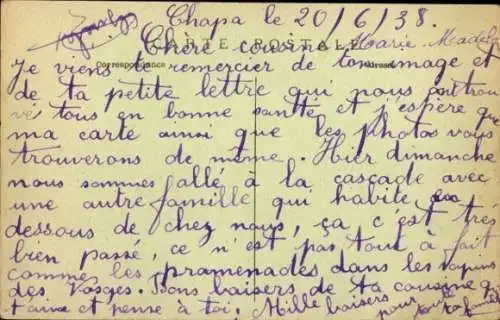 Chapa le 20/6/38.
Chère cousine Marie Madel
CARTE POSTALE
Correspondance Adresse
Je viens te remercier de ton image et
de ta petite lettre qui nous ont trou
vés tous en bonne santé et j'espère que
ma carte ainsi que les photos vous
trouverons de même. Hier dimanche
nous sommes allé à la cascade avec
une autre famille qui habite en
dessous de chez nous, ça c'est très
bien passé, ce n'est pas tout à fait
comme les promenades dans les sapins
des Vosges. Bons baisers de ta cousine qui
t'aime et pense à toi. Mille baisers
pour toute